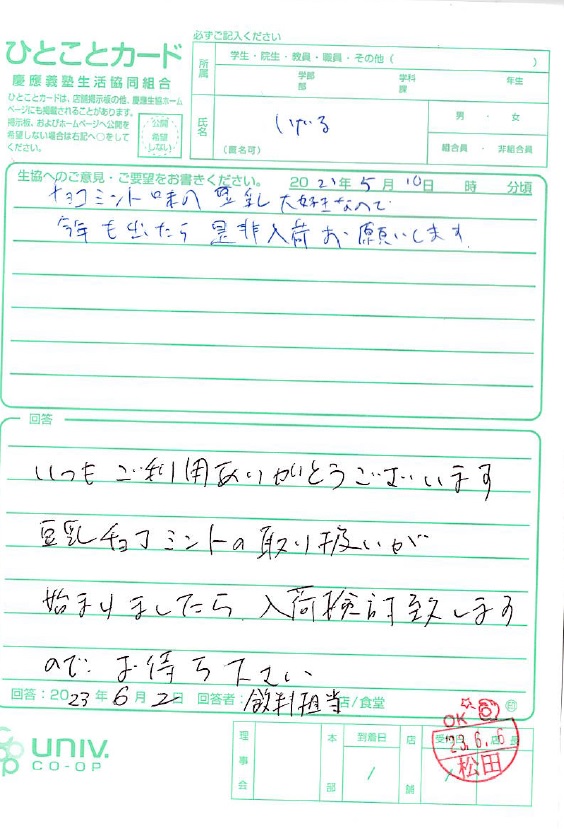 必ずご記入ください
ひとことカード
慶應義塾生活協同組合
ひとことカードは、店舗掲示板の他、慶應生協ホーム
ページにも掲載されることがあります。
掲示板、およびホームページへ公開を
希望しない場合は右記へ○をして
ください。
公開
希望
しない
所属
学生・院生・教員・職員・その他( )
学部 学科 年生
部 課
氏名
(匿名可)
しげる
男・女
組合員・非組合員
生協へのご意見・ご要望をお書きください。 2021年5月10日 時 分頃
チョコミント味の豆乳大好きなので
今年も出たら是非入荷お願いします
回答
いつもご利用ありがとうございます
豆乳チョコミントの取り扱いが
始まりましたら、入荷検討致します
ので、お待ち下さい
回答:2023年6月2日 回答者: 飲料担当 店/食堂
印
UNIV.
CO-OP
理事会
本部
到着日
/
店舗
OK
23.6.6
松田